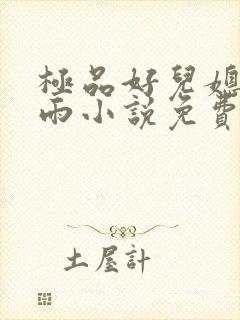 極品好兒媳
雨小説免費
土屋計